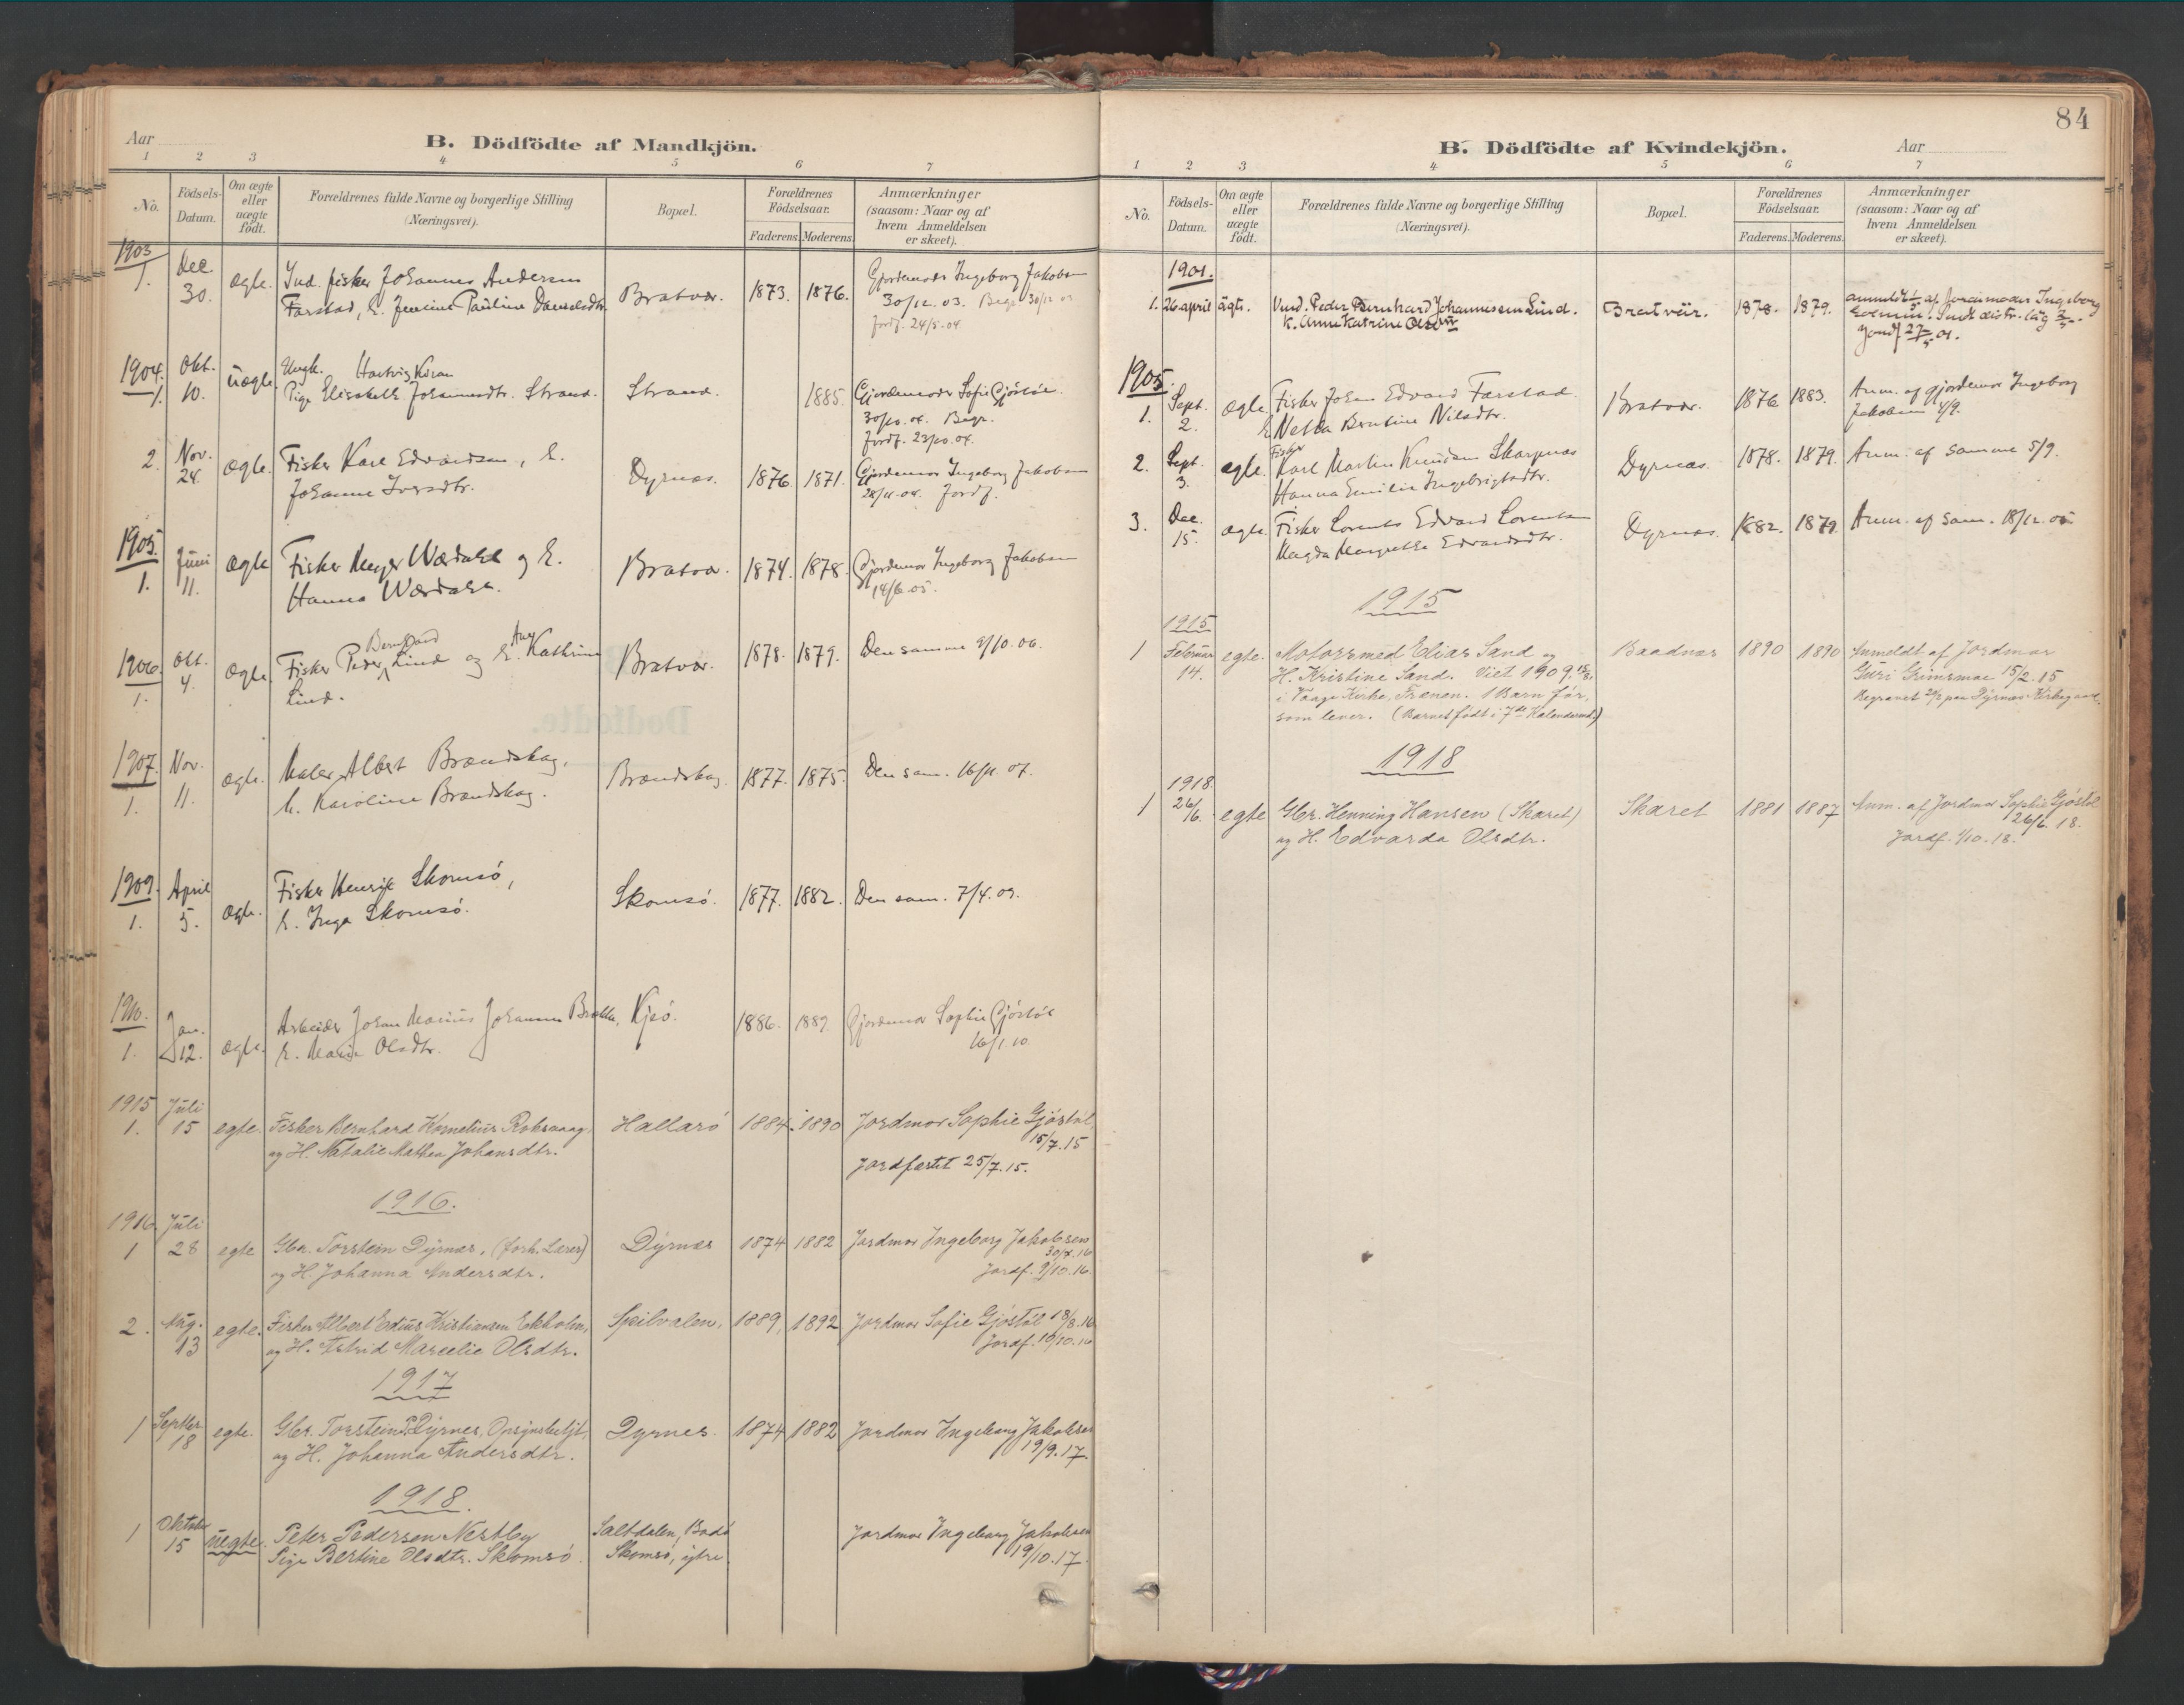 Aar
B. Dödfödte af Mandkjön.
1 2 3 4 5 6 7
No.
Födsels-
Datum.
Om ægte
eller
uægte
født.
Forældrenes fulde Navne og borgerlige Stilling
(Næringsvei).
Bopæl.
Forældrenes
Födselsaar.
Faderens. Moderens.
Anmærkninger
(saasom: Naar og af
hvem Anmeldelsen
er skeet).
1903
1. Dec. 30. ægte. Ind. fisker Johannes Andersen
Farstad, h. Pauline Danielsdtr. Bratvær. 1873. 1876. Gjordemoder Ingeborg Jakobsen
30/12. 03.
Jordf. 24/5. 04.
1904.
1. Okt. 10. uægte Ungk. Hartvig
Pige Elisabeth Johannesdtr. Strand. Strand. 1885. Gjordemoder Sofie Gjöstöl
30/10. 04. Begr.
Jordf. 23/10. 04.
2. Nov. 24. ægte. Fisker Karl Edvardsen, h.
Johanne Iversdtr. Dyrnæs. 1876. 1871. Gjordemor Ingeborg Jakobsen
28/11. 04. Jordf.
1905.
1. Juni 11. ægte Fisker Meyer Wærdahl og h.
Hanna Wærdahl. Bratvær. 1874. 1878. Gjordemor Ingeborg Jakobsen
14/6 05.
1906.
1. Okt. 4. ægte Fisker Peder Bernhard Lind og h. Ane Kathrine
Lind. Bratvær. 1878. 1879. Den samme 9/10. 06.
1907.
1. Nov. 11. ægte. Maler Albert Brændskag,
h. Karoline Brændskag. Brændskag. 1877. 1875. Den sam. 16/11. 07.
1909.
1. April 5. ægte. Fisker Henrik Skomsö,
h. Inga Skomsö. Skomsö. 1877. 1882. Den sam. 7/4. 09.
1910.
1. Jan. 12. ægte. Arbeider Johan Marius Johansen
h. Marie Olsdtr. Kjsö. 1886. 1889. Gjordemor Sophie Gjöstöl
16/1. 10
1915
1. Juli 15 egte. Fisker Bernhard Kornelius Roksvaag,
og H. Natalie Mathea Johansdtr. Hallarö 1884. 1890 Jordmor Sophie Gjöstöl,
15/7. 15
Jordfæstet 25/7. 15.
1916.
1916.
1 Juli 28 egte Gbr. Torstein Dyrnæs, (forh. Lærer)
og H. Johanna Andersdtr. Dyrnæs 1874 1882 Jordmor Ingeborg Jakobsen
30/7. 16
Jordf. 9/10. 16.
2. Aug. 13 egte. Fisker Albert Edius Kristiansen Ekholm,
og H. Astrid Marcelie Olsdtr. Speilvalen, 1889, 1892 Jordmor Sofie Gjöstöl 18/8. 16
Jordf. 10/10. 16
1917
1 Septbr 18 egte. Gbr. Torstein P. Dyrnes, Opsynsbetjt,
og H. Johanna Andersdtr. Dyrnes. 1874 1882 Jordmor Ingeborg Jakobsen
19/9. 17.
1918.
1 Oktober 15 uegte. Peter Pedersen Nestby
Pige Bertine Olsdtr. Skomsö. Saltdalen, Bodö
Skomsö, ytre. Jordmor Ingeborg Jakobsen
19/10. 17.
84
B. Dödfödte af Kvindekjön.
Aar
1 2 3 4 5 6 7
No.
Födsels-
Datum.
Om ægte
eller
uægte
født.
Forældrenes fulde Navne og borgerlige Stilling
(Næringsvei).
Bopæl.
Forældrenes
Födselsaar.
Faderens. Moderens.
Anmærkninger
(saasom: Naar og af
hvem Anmeldelsen
er skeet).
1901.
1. 26 april ägte. Peder Bernhard Johannessen Lind.
k. Anne Katrine Olsdtr Bratvär. 1878. 1879. anmeldt af Jordemoder Ingeborg
1905.
1. Sept. 2. ægte Fisker Johan Edvard Farstad
h. Netta Berntine Nilsdtr. Bratvær. 1876 1883. Anm. af gjordemor Ingeborg
Jakobsen 4/9.
2. Sept. 3. ægte. Fisker
Karl Martin Knudsen Skarpnæs
Hanna Emilie Ingebrigtsdtr. Dyrnæs. 1878. 1879. Anm. af samme 5/9.
3. Dec. 15. ægte. Fisker Lorents Edvard Lorentsen
Magda Margrethe Edvardsdtr. Dyrnæs. 1882. 1879. Anm. af sam. 18/12. 05
1915
1915
1 Februar 14. egte. Motorsmed Elias Sand og
H. Kristine Sand. Viet 1909
i Vaage Kirke, Frænen. 1 Barn før,
som lever. (Barnet født i 7de Kalendermd.) Baadnæs 1890 1890 Anmeldt af Jordmor
Guri Grimsmae 15/2. 15
Begravet paa Dyrnæs Kirkegaard.
1918
1918.
1 26/6. egte Gbr. Henning Hansen (Skaret)
og H. Edvarda Olsdtr. Skaret 1881 1887 Anm. af Jordmor Sophie Gjöstöl
26/6. 18.
Jordf. 1/10. 18.